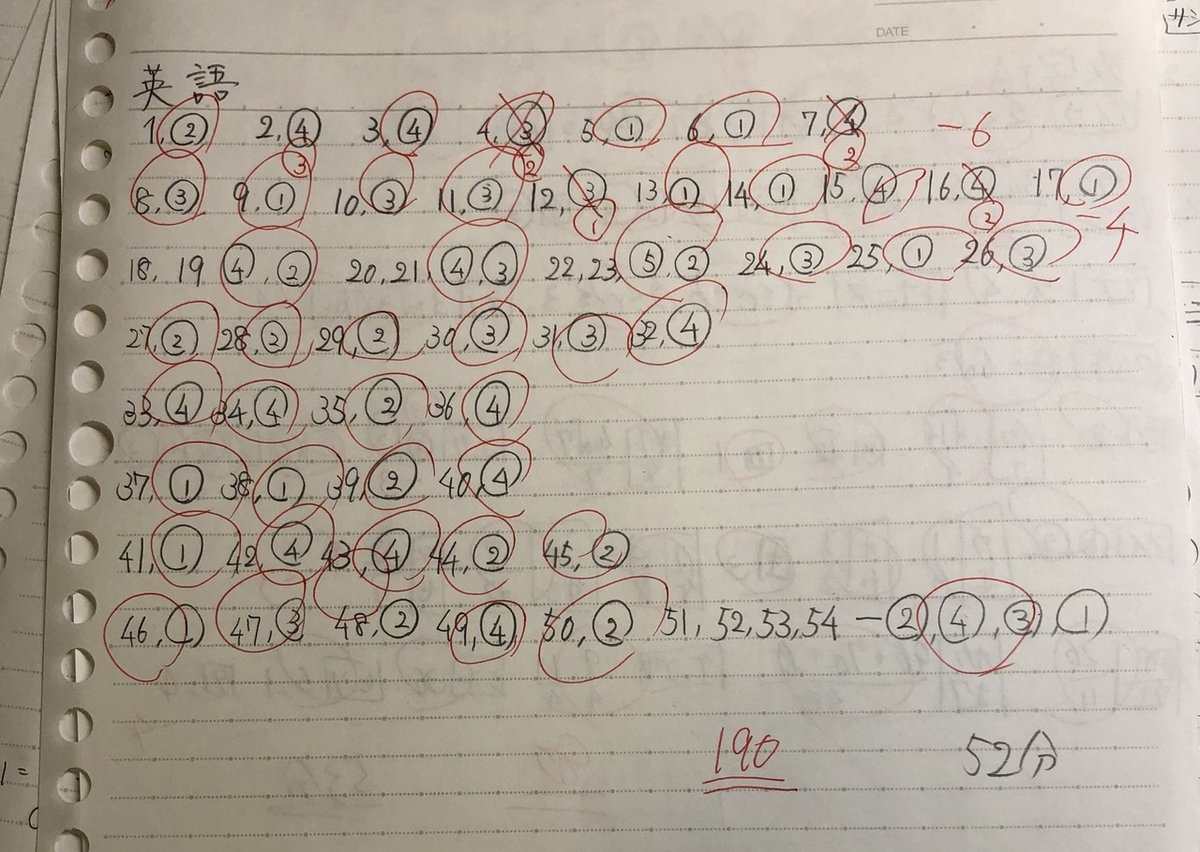 DATE
英語
1,② 2,④ 3,④ 4,③ 5,① 6,① 7,④ -6
③ ② ②
8,③ 9,① 10,③ 11,③ 12,③ 13,① 14,① 15,④ 16,④ 17,① -4
① ②
18,19 ④,② 20,21,④,③ 22,23,⑤,② 24,③ 25,① 26,③
27,② 28,② 29,② 30,③ 31,③ 32,④
33,④ 34,④ 35,② 36,④
37,① 38,① 39,② 40,④
41,① 42,④ 43,④ 44,② 45,②
46,① 47,③ 48,② 49,④ 50,② 51,52,53,54-②,④,③,①
190 52分